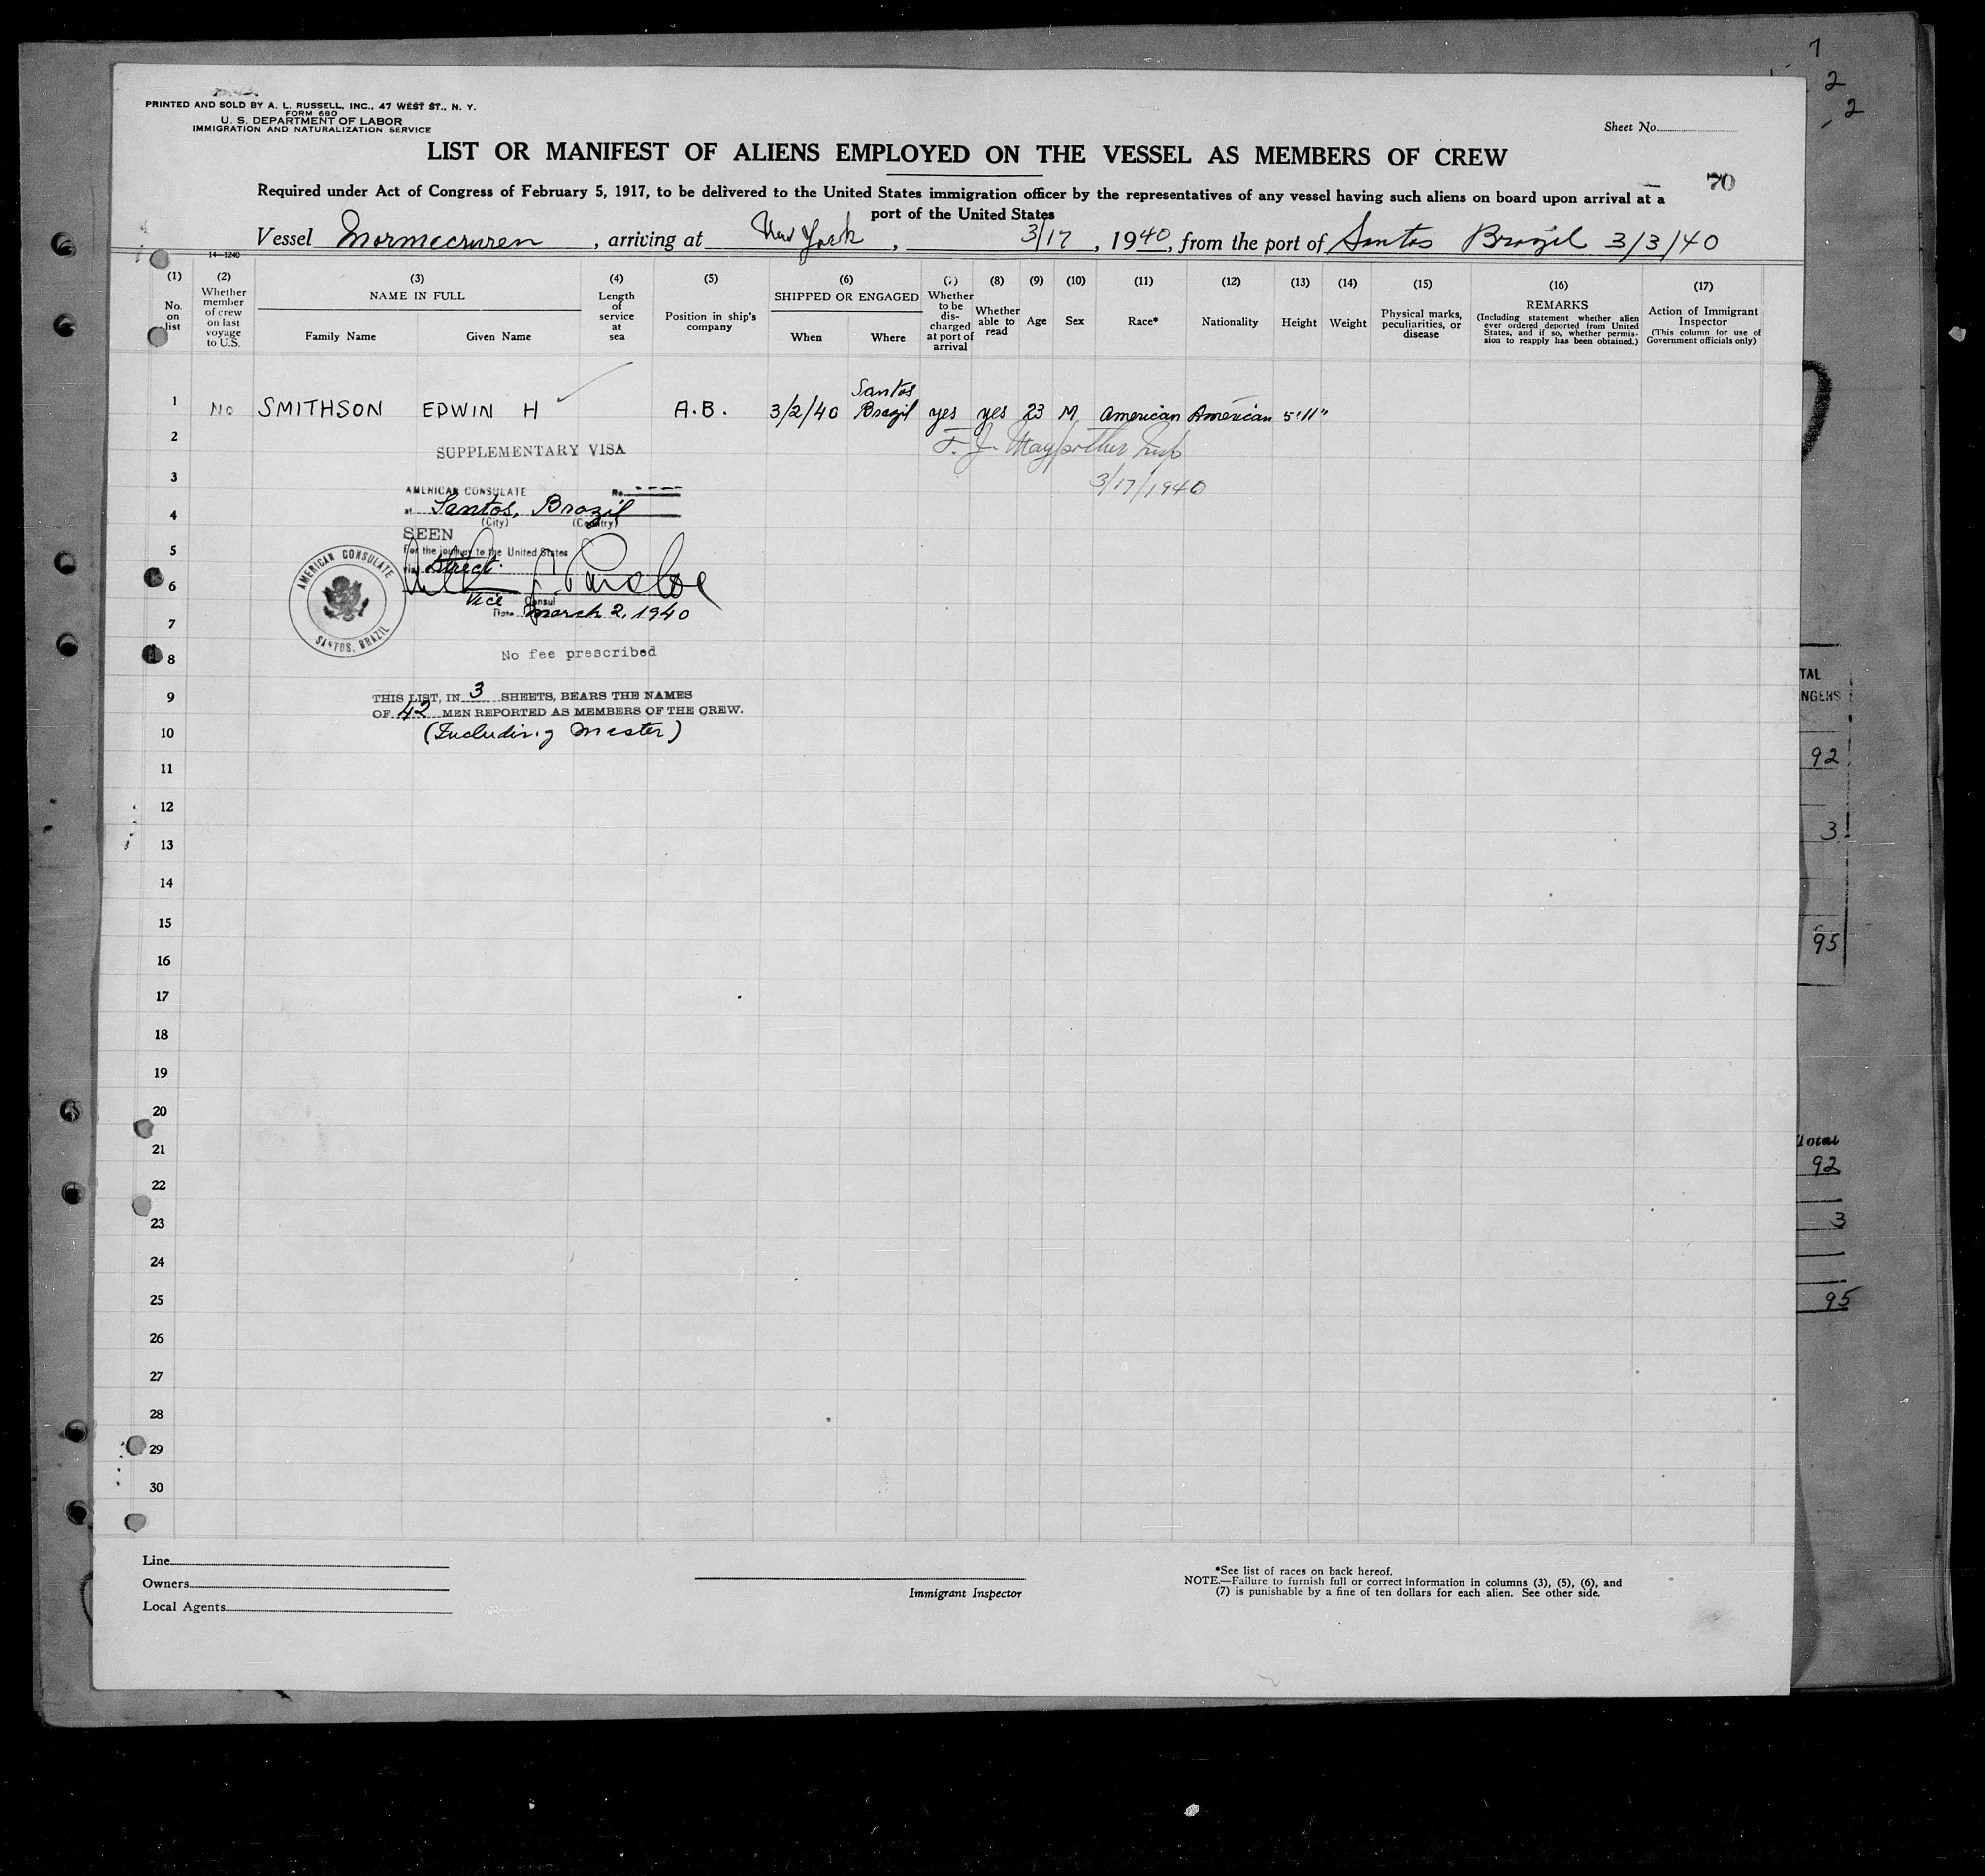 PRINTED AND SOLD BY A. L. RUSSELL, INC., 47 WEST ST., N. Y.
FORM 680
U. S. DEPARTMENT OF LABOR
IMMIGRATION AND NATURALIZATION SERVICE
Sheet No.
LIST OR MANIFEST OF ALIENS EMPLOYED ON THE VESSEL AS MEMBERS OF CREW
70
Required under Act of Congress of February 5, 1917, to be delivered to the United States immigration officer by the representatives of any vessel having such aliens on board upon arrival at a
port of the United States
Vessel Mormacruren, arriving at New York, 3/17, 1940, from the port of Santos Brazil 3/3/40
14—1240
(1) No. on list
(2) Whether member of crew on last voyage to U.S.
(3) NAME IN FULL
Family Name Given Name
(4) Length of service at sea
(5) Position in ship's company
(6) SHIPPED OR ENGAGED
When Where
(7) Whether to be discharged at port of arrival
(8) Whether able to read
(9) Age
(10) Sex
(11) Race*
(12) Nationality
(13) Height
(14) Weight
(15) Physical marks, peculiarities, or disease
(16) REMARKS
(Including statement whether alien ever ordered deported from United States, and if so, whether permission to reapply has been obtained.)
(17) Action of Immigrant Inspector
(This column for use of Government officials only)
1 No SMITHSON EDWIN H A.B. 3/2/40 Santos Brazil yes yes 23 M American American 5'11"
2
SUPPLEMENTARY VISA
3
3/17/1940
AMERICAN CONSULATE No. ----
at Santos, Brazil
(City) (Country)
4
SEEN
For the journey to the United States
5
via Direct.
6
Vice Consul
Date March 2, 1940
AMERICAN CONSULATE
SANTOS, BRAZIL
7
No fee prescribed
8
9
THIS LIST, IN 3 SHEETS, BEARS THE NAMES
OF 42 MEN REPORTED AS MEMBERS OF THE CREW.
(Including Master)
10
11
12
13
14
15
16
17
18
19
20
21
22
23
24
25
26
27
28
29
30
Line
Owners
Local Agents
Immigrant Inspector
*See list of races on back hereof.
NOTE.—Failure to furnish full or correct information in columns (3), (5), (6), and
(7) is punishable by a fine of ten dollars for each alien. See other side.
7
2
2
TAL
NGERS
92
3
95
Total
92
3
95